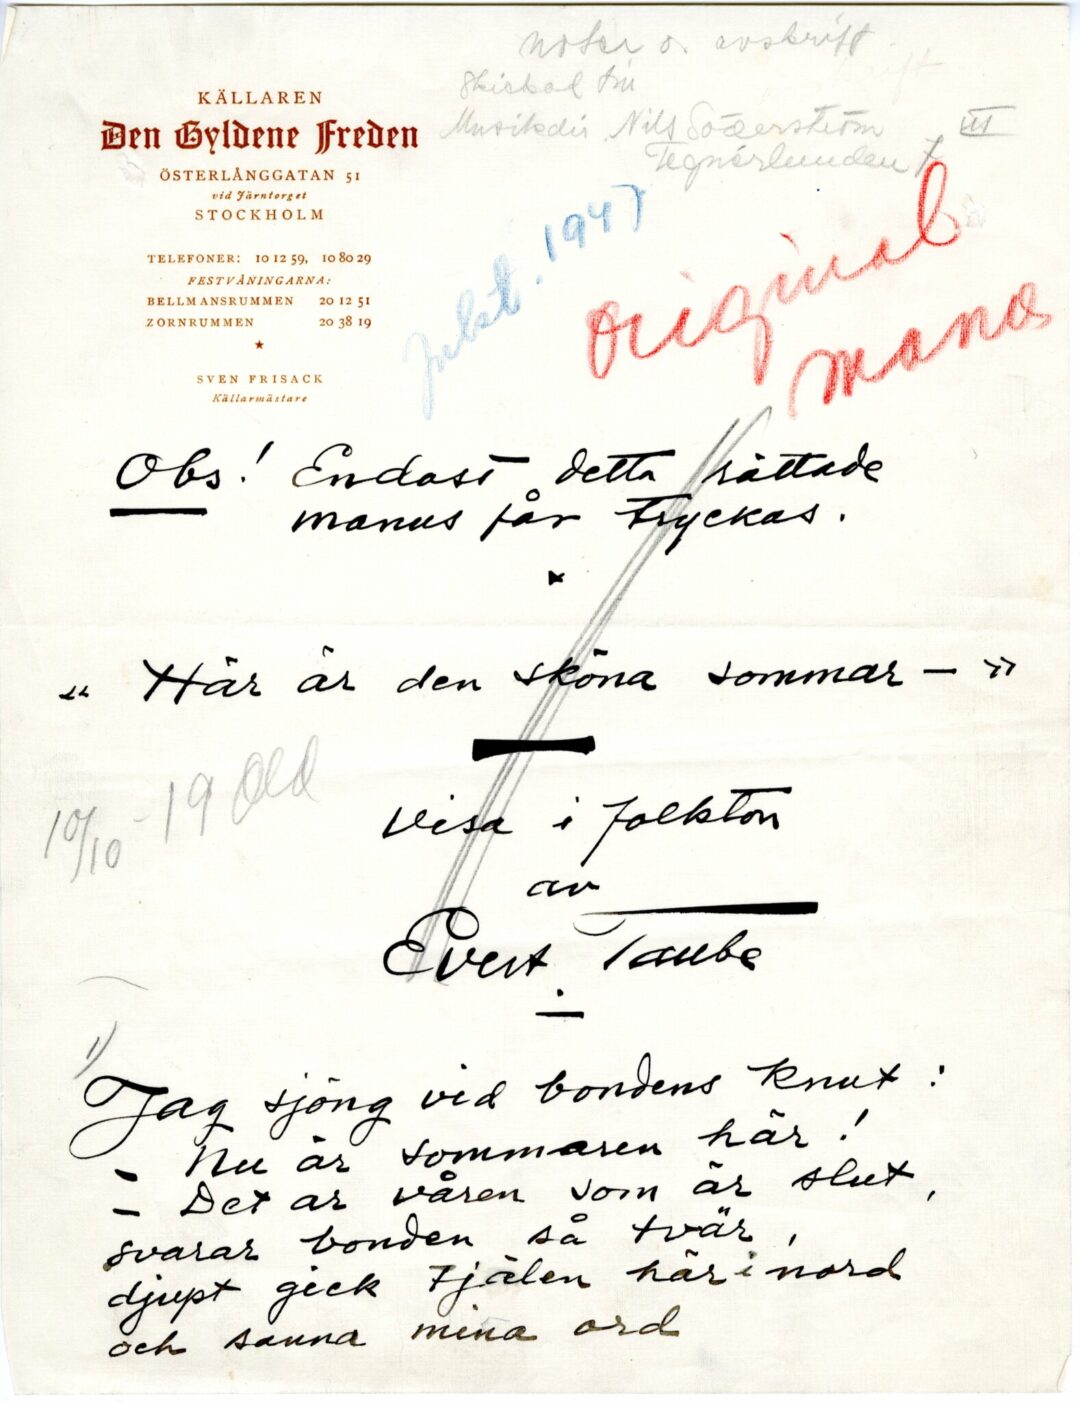 noter o. avskrift
Skickad till
Musikdir. Nils Söderström
Tegnérlunden 7
III
KÄLLAREN
Den Gyldene Freden
ÖSTERLÅNGGATAN 51
vid Järntorget
STOCKHOLM
TELEFONER: 10 12 59, 10 80 29
FESTVÅNINGARNA:
BELLMANSRUMMEN 20 12 51
ZORNRUMMEN 20 38 19
SVEN FRISACK
Källarmästare
1947
Original
manus
Obs! Endast detta rättade
manus får tryckas.
"Här är den sköna sommar — "
10/10 - 19
Visa i folkton
av
Evert Taube
1)
Jag sjöng vid bondens knut:
– Nu är sommaren här!
– Det är våren som är slut,
svarar bonden så tvär,
djupt gick tjälen här i nord
och sanna mina ord